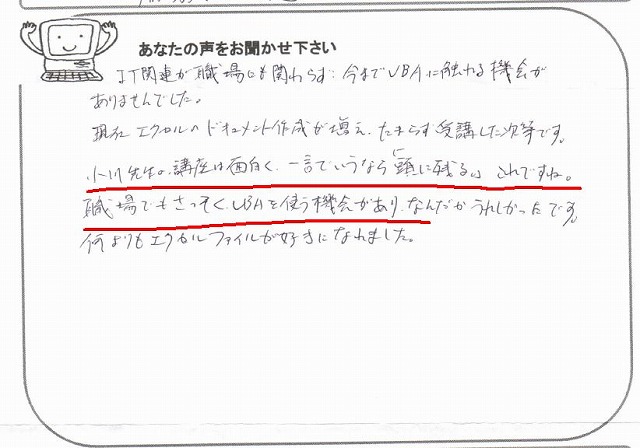 あなたの声をお聞かせ下さい
IT関連が職場にも関わらず、今までVBAに触れる機会が
ありませんでした。
現在エクセルのドキュメント作成が増え、たまらず受講した次第です。
小川先生の講座は面白く、一言でいうなら「頭に残る」これですね。
職場でもさっそくVBAを使う機会があり、なんだかうれしかったです。
何よりもエクセルファイルが好きになれました。